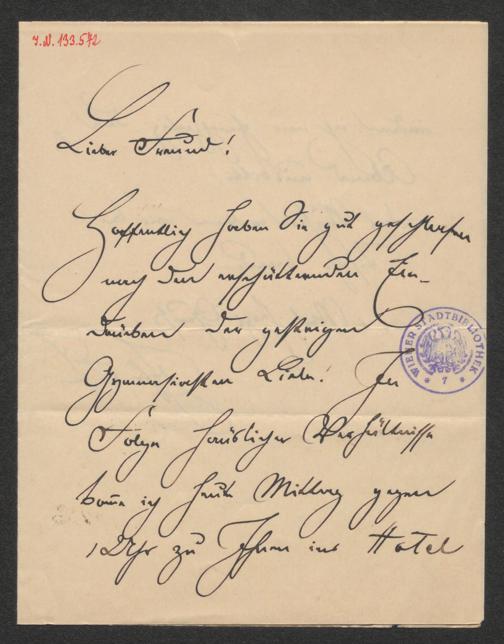 I.N. 133.572
Lieber Freund!
Hoffentlich haben Sie gut geschlafen
nach den erschütternden Ein-
drücken der gestrigen
Lieder! In
Folge häuslicher Verhältnisse
kom̄e ich heute Mittag gegen
1 Uhr zu Ihnen ins Hotel
WIENER STADTBIBLIOTHEK
* 7 *